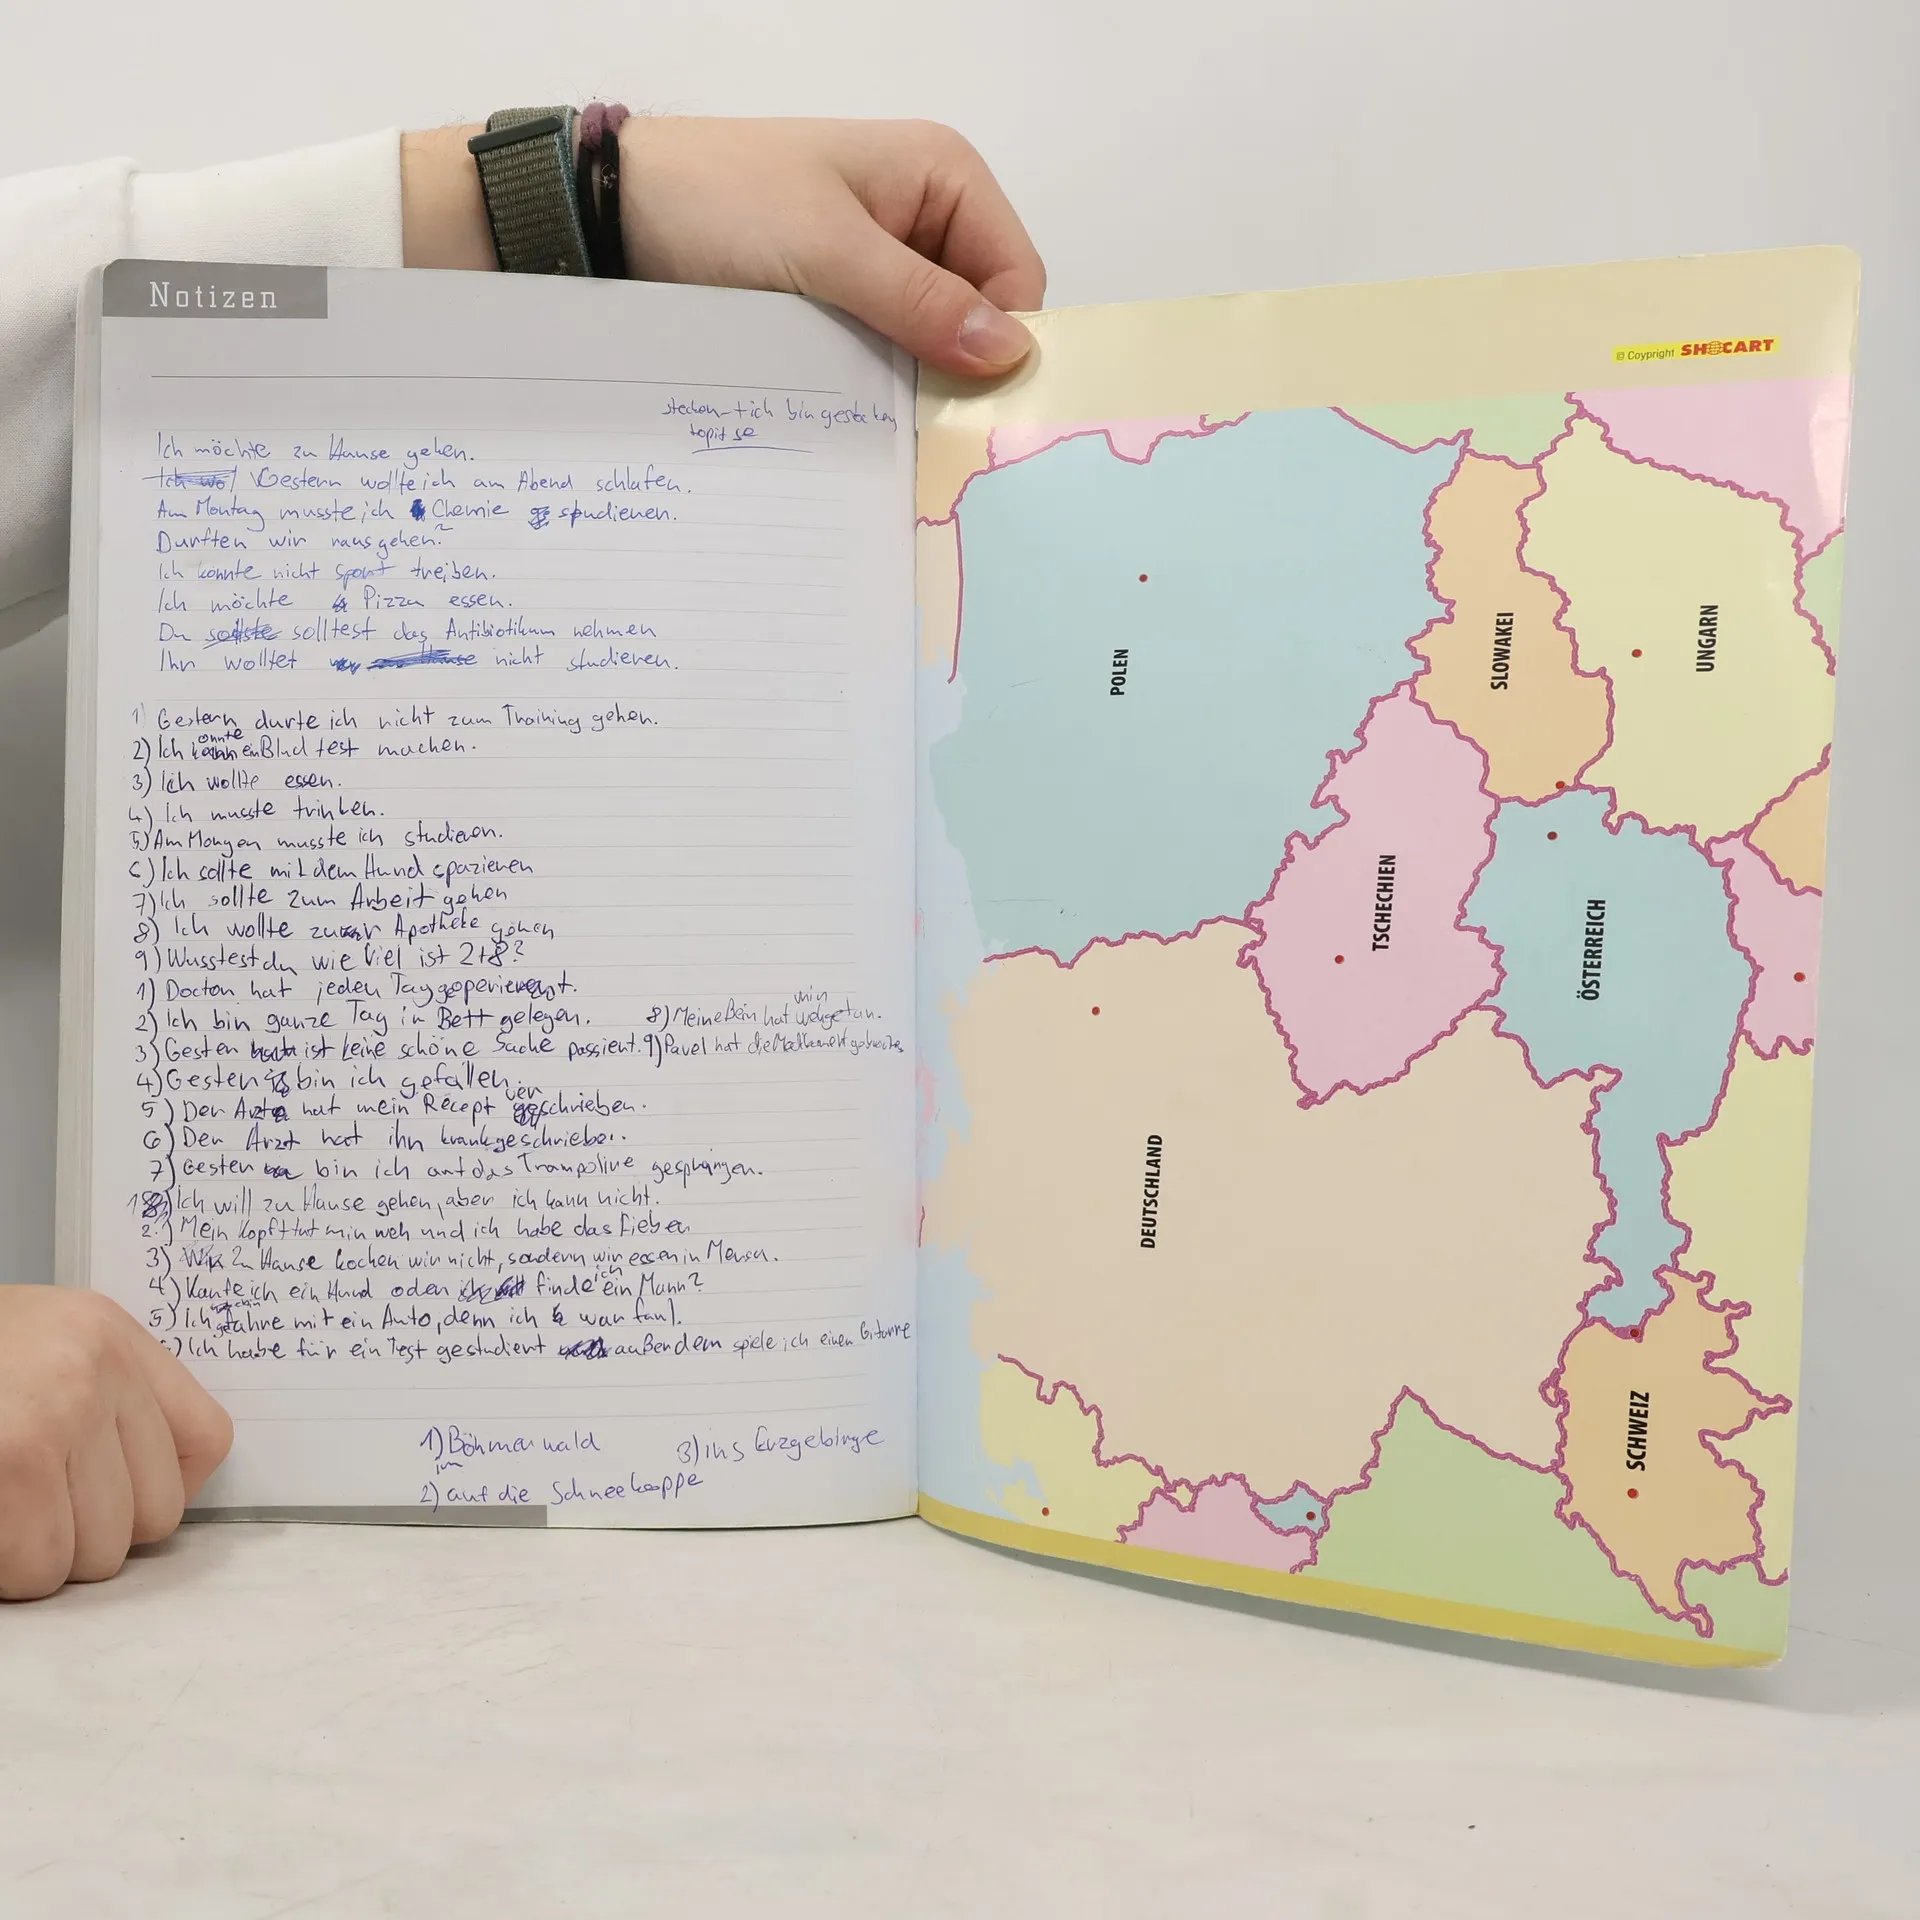 Notizen
ich bin
topit se
Ich möchte zu Hause gehen.
Gestern wollte ich am Abend schlafen.
Am Montag musste ich Chemie spudieren.
Durften wir rausgehen?
Ich konnte nicht sport treiben.
Ich möchte Pizza essen.
Du solltest das Antibiotikum nehmen
Ihr wolltet nicht studieren.
1) Gestern durte ich nicht zum Training gehen.
2) Ich konnte ein Blud test machen.
3) Ich wollte essen.
4) Ich musste trinken.
5) Am Morgen musste ich studieren.
6) Ich sollte mit dem Hund spazieren
7) Ich sollte zum Arbeit gehen
8) Ich wollte zur Apotheke gehen
9) Wusstest du wie viel ist 2+8?
1) Doctor hat jeden Tag operiert.
2) Ich bin ganze Tag in Bett gelegen.
8) Meine Bein hat mir wehgetan.
3) Gesten ist keine schöne Sache passiert.
9) Pavel hat die
4) Gesten bin ich gefallen.
5) Der Arzt hat mein Recept verschrieben.
6) Der Arzt hat ihn krankgeschrieben.
7) Gesten bin ich auf das Trampoline gesprungen.
1) Ich will zu Hause gehen, aber ich kann nicht.
2) Mein Kopf tut mir weh und ich habe das Fieber
3) Zu Hause kochen wir nicht, sondern wir essen in Mensa.
4) Kaufe ich ein Hund oder finde ich ein Mann?
5) Ich fahre mit ein Auto, denn ich war faul.
6) Ich habe für ein Test gestudiert außerdem spiele ich einen Gitarre
1) im Böhmerwald
3) ins Erzgebirge
2) auf die Schneekoppe
© Coypright SHOCART
POLEN
SLOWAKEI
UNGARN
TSCHECHIEN
ÖSTERREICH
DEUTSCHLAND
SCHWEIZ